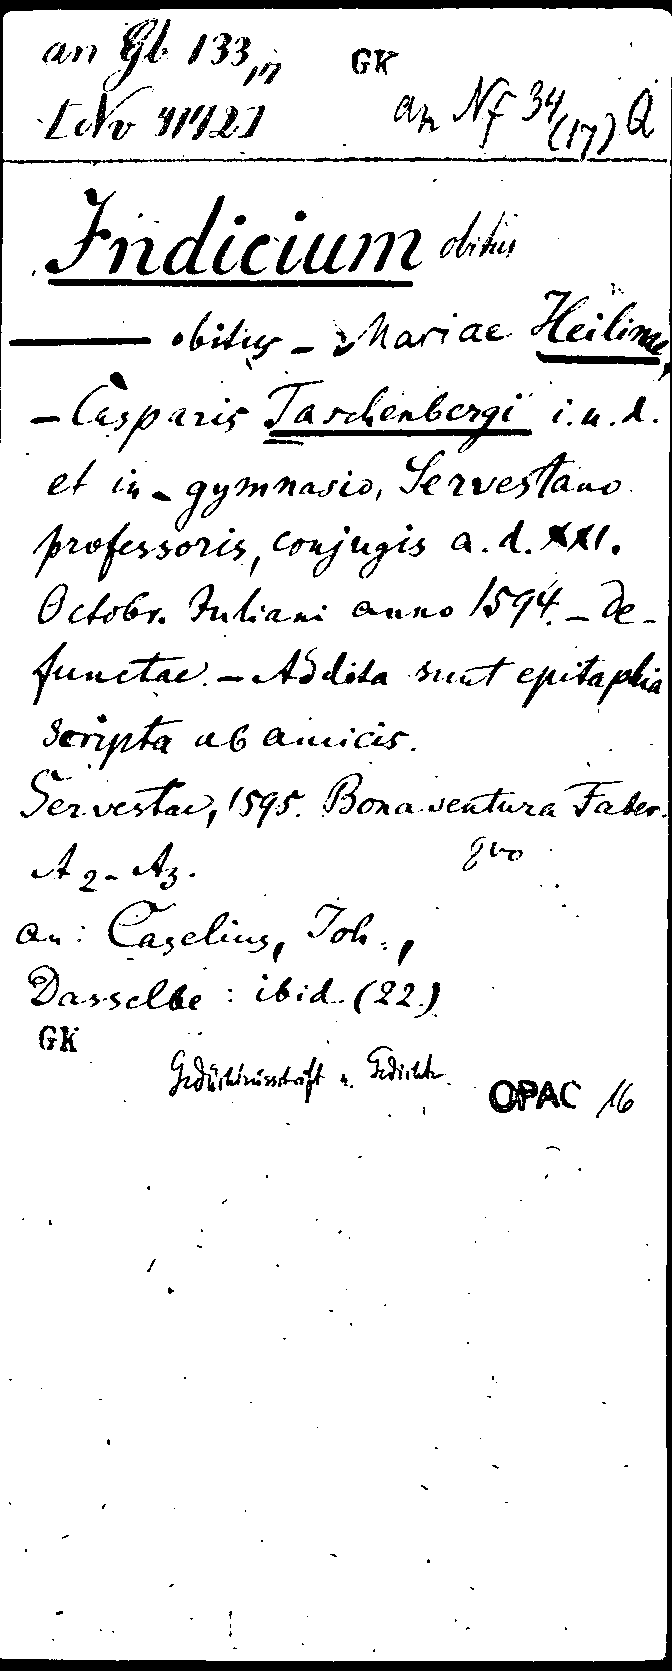 an Gb 133,17 GK
[Nv 4142] an Nf 34 (17) Q
Indicium obitus
— obitus - Mariae Heilinae,
- Casparis Taschenbergi i.u.d.
et in - gymnasio, Servestano
professoris, conjugis a.d. XXI.
Octobr. Juliani anno 1594. - De-
functae. - Addita sunt epitaphia
scripta ab amicis.
Servestae, 1595. Bonaventura Faber.
A2-A3. 8vo
an: Caselius, Joh.,
Dasselbe: ibid. (22)
GK
Gedächtnisschrift u. Gedichte.
OPAC 16